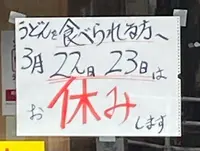 うどんを食べられる方へ
3月22日23日は
お休みします